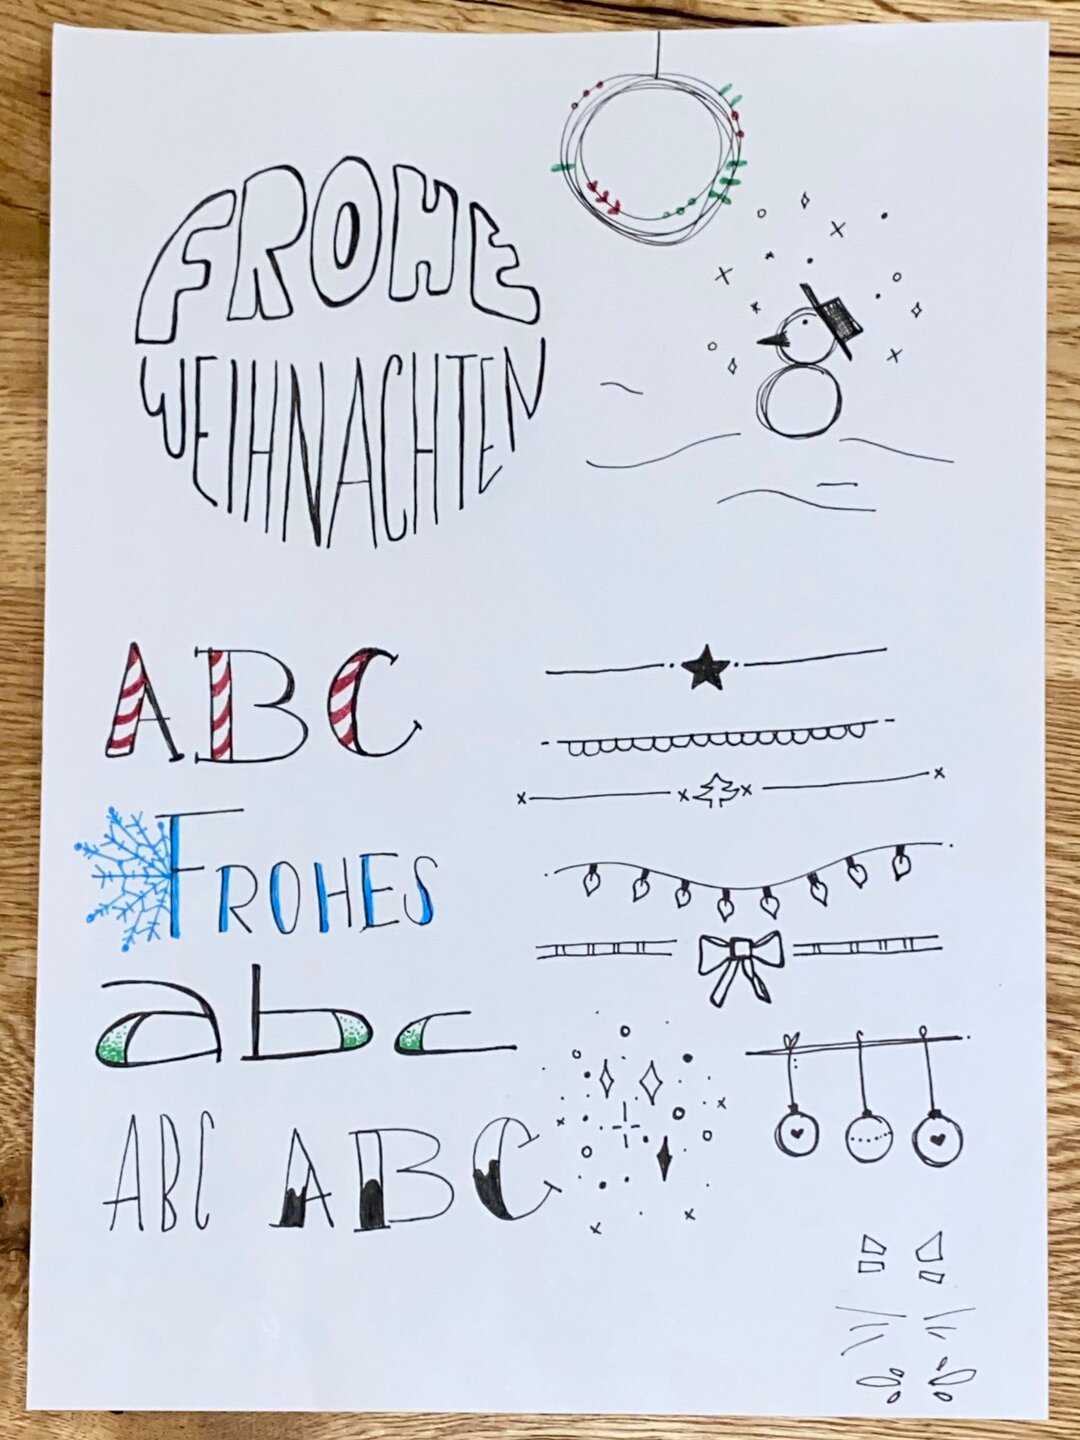 FROHE
WEIHNACHTEN
ABC
FROHES
abc
ABC ABC